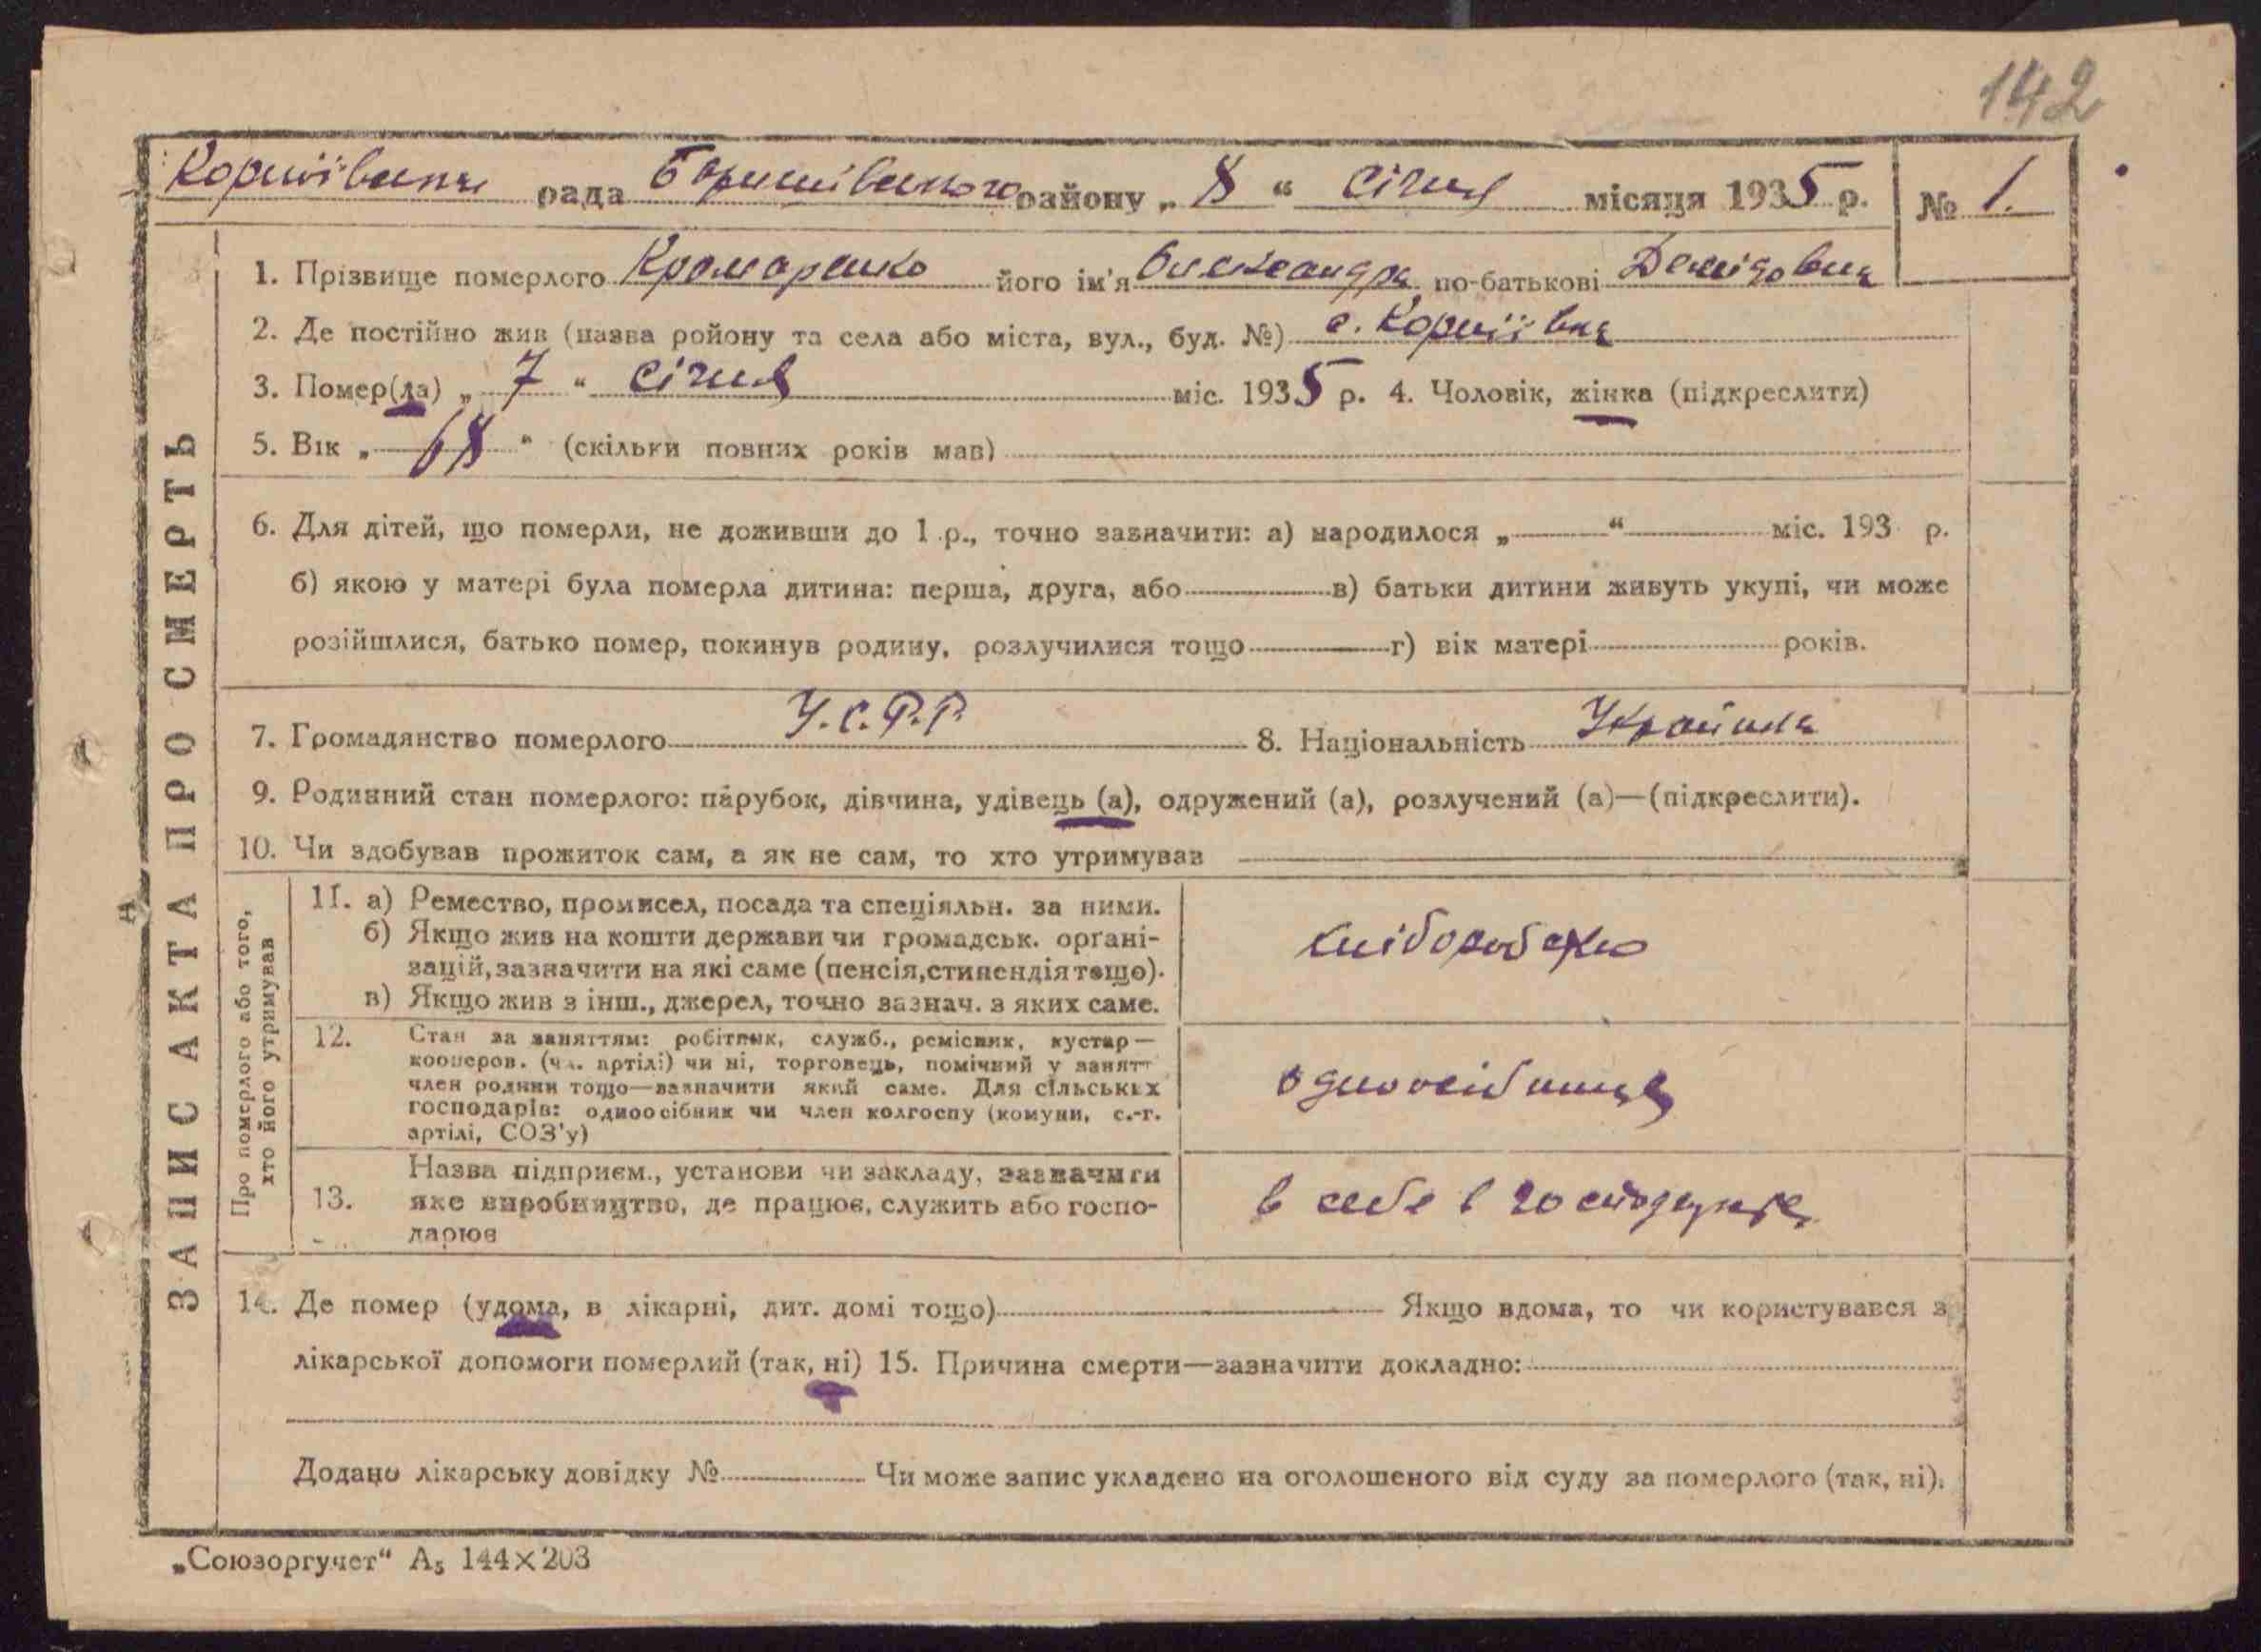 142
Корніївська рада Баришівського району „ 8 “ січня місяця 1935 р. № 1.
ЗАПИС АКТА ПРО СМЕРТЬ
1. Прізвище померлого Крамаренко його ім'я Олександра по-батькові Демідовна
2. Де постійно жив (назва ройону та села або міста, вул., буд. №) с. Корніївка
3. Помер(ла) „ 7 “ січня міс. 1935 р. 4. Чоловік, жінка (підкреслити)
5. Вік „ 68 “ (скільки повних років мав)
6. Для дітей, що померли, не доживши до 1 р., точно зазначити: а) народилося „ “ міс. 193 р.
б) якою у матері була померла дитина: перша, друга, або в) батьки дитини живуть укупі, чи може
розійшлися, батько помер, покинув родину, розлучилися тощо г) вік матері років.
7. Громадянство померлого У.С.Р.Р. 8. Національність Україниця
9. Родинний стан померлого: парубок, дівчина, удівець (а), одружений (а), розлучений (а)—(підкреслити).
10. Чи здобував прожиток сам, а як не сам, то хто утримував
Про померлого або того,
хто його утримував
11. а) Ремество, промисел, посада та спеціяльн. за ними.
б) Якщо жив на кошти держави чи громадськ. орґані-
зацій, зазначити на які саме (пенсія, стипендія тощо).
в) Якщо жив з інш., джерел, точно зазнач. з яких саме.
хліборобство
12. Стан за заняттям: робітник, служб., ремісник, кустар—
кооперов. (чл. артілі) чи ні, торговець, помічний у занятт
член родини тощо—зазначити який саме. Для сільських
господарів: одноосібник чи член колгоспу (комуни, с.-г.
артілі, СОЗ'у)
одноосібниця
13. Назва підприєм., установи чи закладу, зазначити
яке виробництво, де працює, служить або госпо-
дарює
в себе в господарстві
14. Де помер (удома, в лікарні, дит. домі тощо) Якщо вдома, то чи користувався з
лікарської допомоги померлий (так, ні) 15. Причина смерти—зазначити докладно:
Додано лікарську довідку № Чи може запис укладено на оголошеного від суду за померлого (так, ні).
„Союзоргучет“ А₅ 144×203